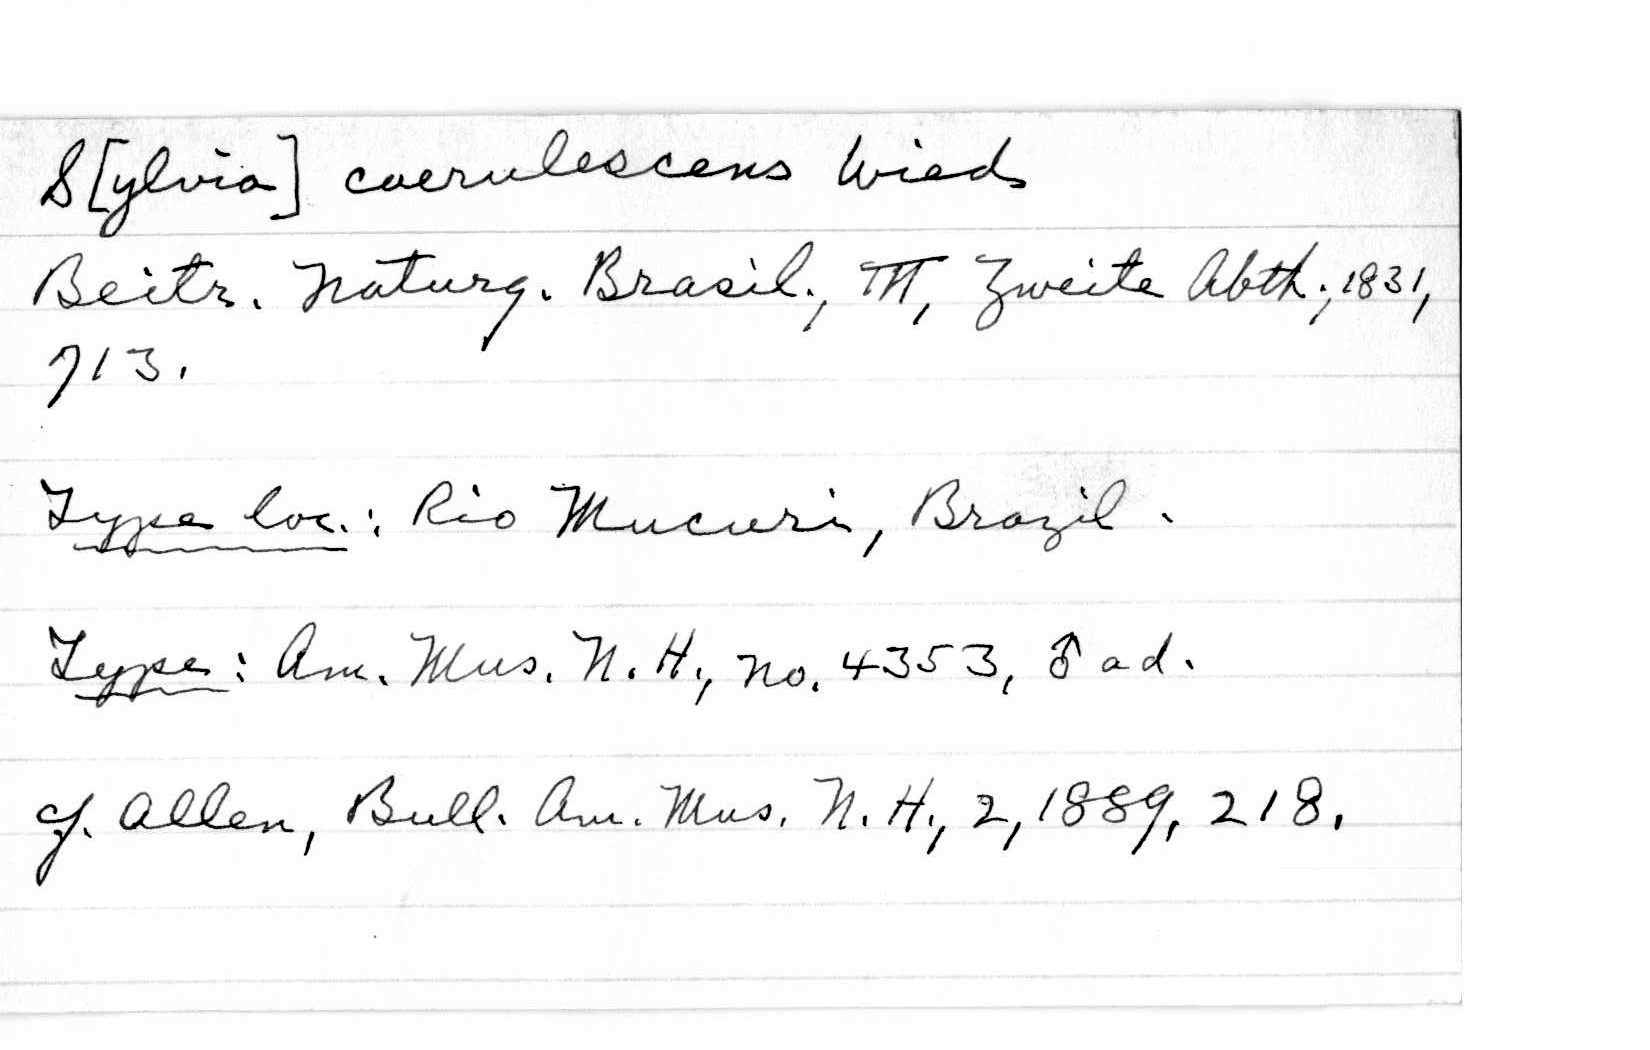 S[ylvia] caerulescens Wied
Beitr. Naturg. Brasil., III, Zweite Abth., 1831,
713.
Type loc.: Rio Mucuri, Brazil.
Type: Am. Mus. N. H., no. 4353, ♂ ad.
cf. Allen, Bull. Am. Mus. N. H., 2, 1889, 218.